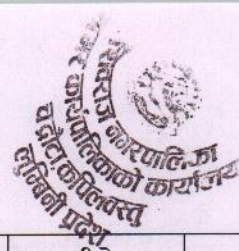 शिवराज नगरपालिका
नगर कार्यपालिकाको कार्यालय
चन्द्रौटा कपिलवस्तु
लुम्बिनी प्रदेश